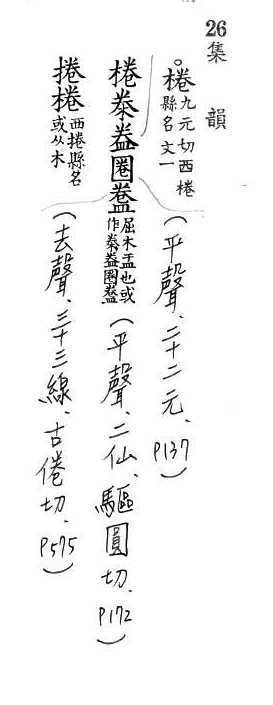 26 集韻
。棬九元切西棬縣名文一（平聲、二十二元、P137）
棬桊益圈蓋屈木盂也或作桊益圈蓋（平聲、二仙、驅圓切、P172）
捲棬西捲縣名或从木（去聲、三十三線、古倦切、P575）